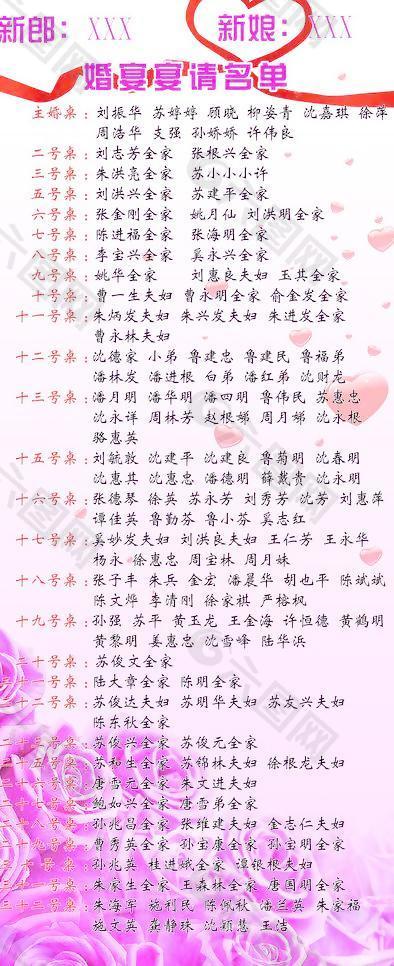 新郎：XXX 新娘：XXX
婚宴宴请名单
主婚桌：刘振华 苏婷婷 顾晓 柳姿青 沈嘉琪 徐萍
周浩华 支强 孙娇娇 许伟良
二号桌：刘志芳全家 张根兴全家
三号桌：朱洪亮全家 苏小小小许
五号桌：刘洪兴全家 苏建平全家
六号桌：张金刚全家 姚月仙 刘洪明全家
七号桌：陈进福全家 张海明全家
八号桌：李宝兴全家 奚永兴全家
九号桌：姚华全家 刘惠良夫妇 王其全家
十号桌：曹一生夫妇 曹永明全家 俞金发全家
十一号桌：朱炳发夫妇 朱兴发夫妇 朱进发全家
曹永林夫妇
十二号桌：沈德家 小弟 鲁建忠 鲁建民 鲁福弟
潘林发 潘进根 白弟 潘红弟 沈财龙
十三号桌：潘月明 潘华明 潘四明 鲁伟民 苏惠忠
沈永详 周林芳 赵根娣 周月娣 沈永根
骆惠英
十五号桌：刘毓敦 沈建平 沈建良 鲁菊明 沈春明
沈惠其 沈惠忠 潘德明 薛戴贵 沈永明
十六号桌：张德琴 徐英 苏永芳 刘秀芳 沈芳 刘惠萍
谭佳英 鲁勤芬 鲁小芬 奚志红
十七号桌：奚妙发夫妇 刘洪良夫妇 王仁芳 王永华
杨永 徐惠忠 周宝林 周月妹
十八号桌：张子丰 朱兵 金宏 潘晨华 胡也平 陈斌斌
陈文烨 李清刚 徐家祺 严榕枫
十九号桌：孙强 苏平 黄玉龙 王金海 许恒德 黄鹤明
黄黎明 姜惠忠 沈雪峰 陆华浜
二十号桌：苏俊文全家
二十一号桌：陆大章全家 陈明全家
二十二号桌：苏俊达夫妇 苏明华夫妇 苏友兴夫妇
陈东秋全家
二十三号桌：苏俊兴全家 苏俊元全家
二十五号桌：苏和生全家 苏锦林夫妇 徐根龙夫妇
二十六号桌：唐雪元全家 朱文进夫妇
二十七号桌：鲍如兴全家 唐雪弟全家
二十八号桌：孙兆昌全家 张维建夫妇 金志仁夫妇
二十九号桌：曹秀英全家 孙宝康全家 孙宝明全家
三十号桌：孙兆英 桂进娥全家 谭银根夫妇
三十一号桌：朱家生全家 王森林全家 唐国明全家
三十二号桌：朱海军 施利民 陈佩秋 潘兰英 朱家福
施文英 龚静珠 沈颖慧 王洁